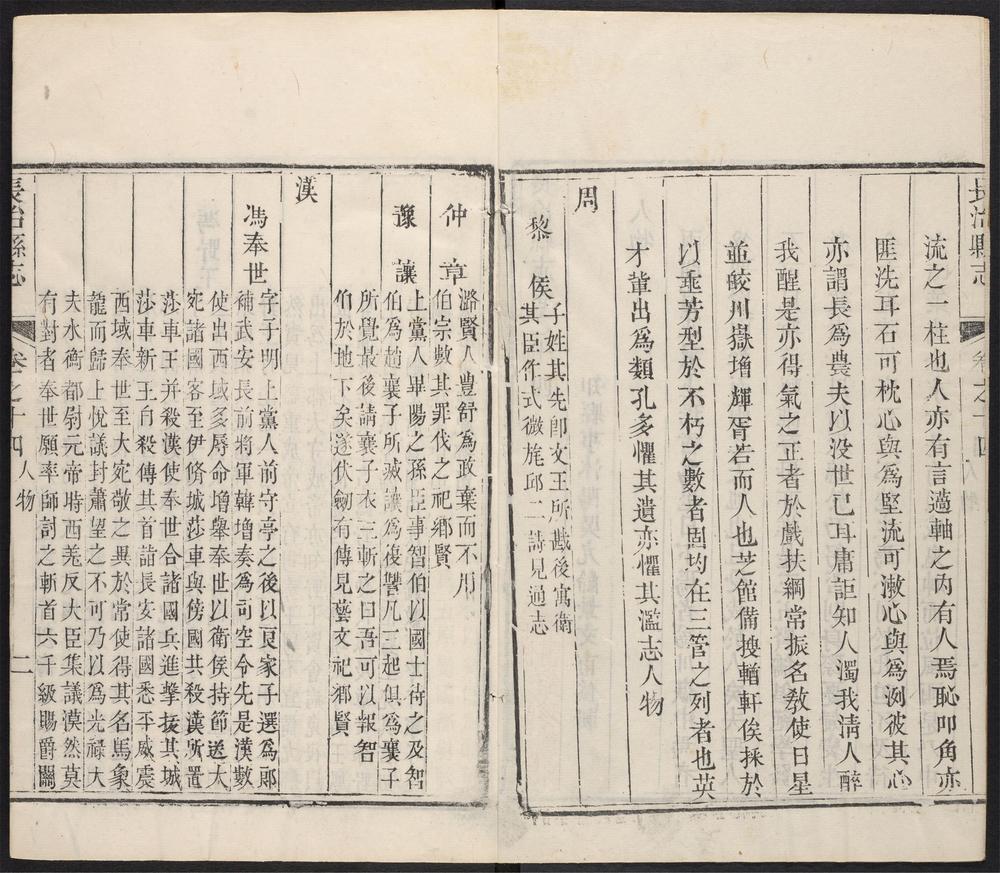 長治縣志
卷之十四
人物
流之一柱也人亦有言薖軸之內有人焉恥叩角亦
匪洗耳石可枕心與爲堅流可漱心與爲洌彼其心
亦謂長爲農夫以没世已耳庸詎知人濁我淸人醉
我醒是亦得氣之正者於戲扶綱常振名敎使日星
並皎川嶽增輝胥若而人也芝館備搜輶軒俟採於
以垂芳型於不朽之數者固均在三管之列者也英
才輩出爲類孔多懼其遺亦懼其濫志人物
周
黎侯
子姓其先卽文王所戡後寓衛
其臣作式微旄邱二詩見通志
仲章
潞賢人豊舒爲政棄而不用
伯宗數其罪伐之祀鄕賢
豫讓
上黨人畢陽之孫臣事智伯以國士待之及智
伯爲趙襄子所滅讓爲復讐凡三起俱爲襄子
所覺最後請襄子衣三斬之曰吾可以報智
伯於地下矣遂伏劒有傳見藝文祀鄕賢
漢
馮奉世
字子明上黨人前守亭之後以良家子選爲郞
補武安長前將軍韓增奏爲司空令先是漢數
使出西域多辱命增舉奉世以衛侯持節送大
宛諸國客至伊脩城莎車與傍國共殺漢所置
莎車王并殺漢使奉世合諸國兵進擊拔其城
莎車新王自殺傳其首詣長安諸國悉平威震
西域奉世至大宛敬之異於常使得其名馬象
龍而歸上悅議封蕭望之不可乃以爲光祿大
夫水衡都尉元帝時西羌反大臣集議漠然莫
有對者奉世願率師討之斬首六千級賜爵關
長治縣志
卷之十四
人物
二